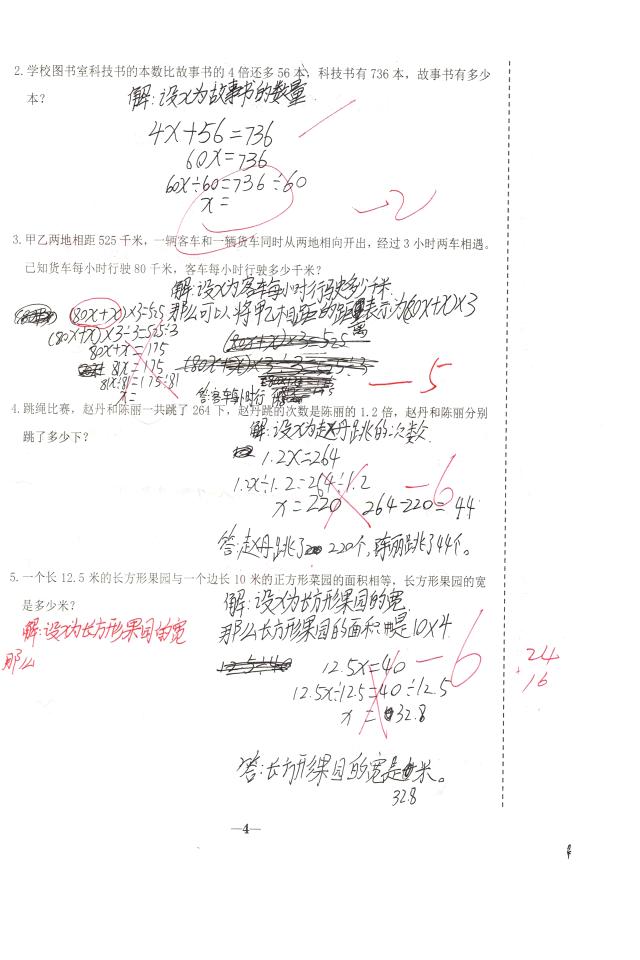 2. 学校图书室科技书的本数比故事书的 4 倍还多 56 本，科技书有 736 本，故事书有多少
本？
解:设x为故事书的数量
4x+56=736
60x=736
60x÷60=736÷60
x=
-2
3. 甲乙两地相距 525 千米，一辆客车和一辆货车同时从两地相向开出，经过 3 小时两车相遇。
已知货车每小时行驶 80 千米，客车每小时行驶多少千米？
解:设x为客车每小时行驶多少千米
那么可以将甲乙相距的距离表示为(80x+x)×3
(80x+x)×3=525
(80x+x)×3÷3=525÷3
80x+x=175
81x=175
81x÷81=175÷81
x=
答:客车每小时行
-5
4. 跳绳比赛，赵丹和陈丽一共跳了 264 下，赵丹跳的次数是陈丽的 1.2 倍，赵丹和陈丽分别
跳了多少下？
解:设x为赵丹跳的次数
1.2x=264
1.2x÷1.2=264÷1.2
x=220 264-220=44
-6
答:赵丹跳了220个,陈丽跳了44个。
5. 一个长 12.5 米的长方形果园与一个边长 10 米的正方形菜园的面积相等，长方形果园的宽
是多少米？
解:设x为长方形果园的宽
那么长方形果园的面积是10×4
解:设x为长方形果园的宽
那么
12.5x=40
12.5x÷12.5=40÷12.5
x=32.8
-6
24
16
答:长方形果园的宽是 米。
32.8
—4—